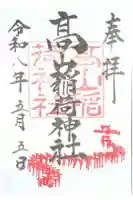 奉拝
髙山稲荷神社
令和八年五月五日